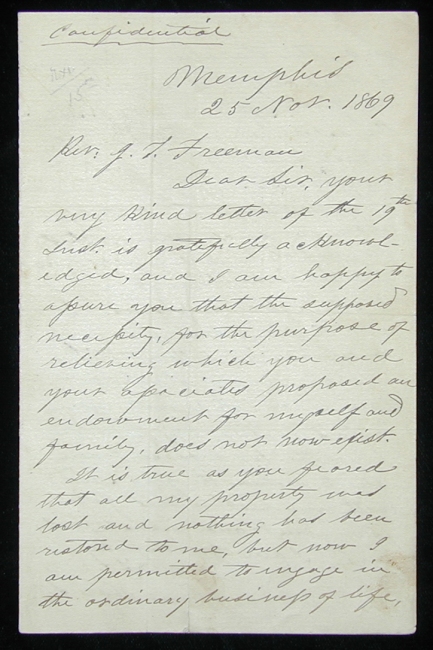 Confidential
15
Memphis
25 Nov. 1869
Rev. J. F. Freeman
Dear Sir, your
very kind letter of the 19th
Inst. is gratefully acknowl-
edged, and I am happy to
assure you that the supposed
necessity, for the purpose of
relieving which you and
your associates proposed an
endowment for myself and
family, does not now exist.
It is true as you feared
that all my property was
lost and nothing has been
restored to me, but now I
am permitted to engage in
the ordinary business of life,